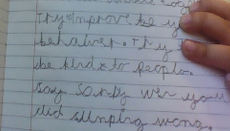 Try improve be yo
behaiver. Try
be kind to people.
Say Sorry wen you
did sumping wrong.